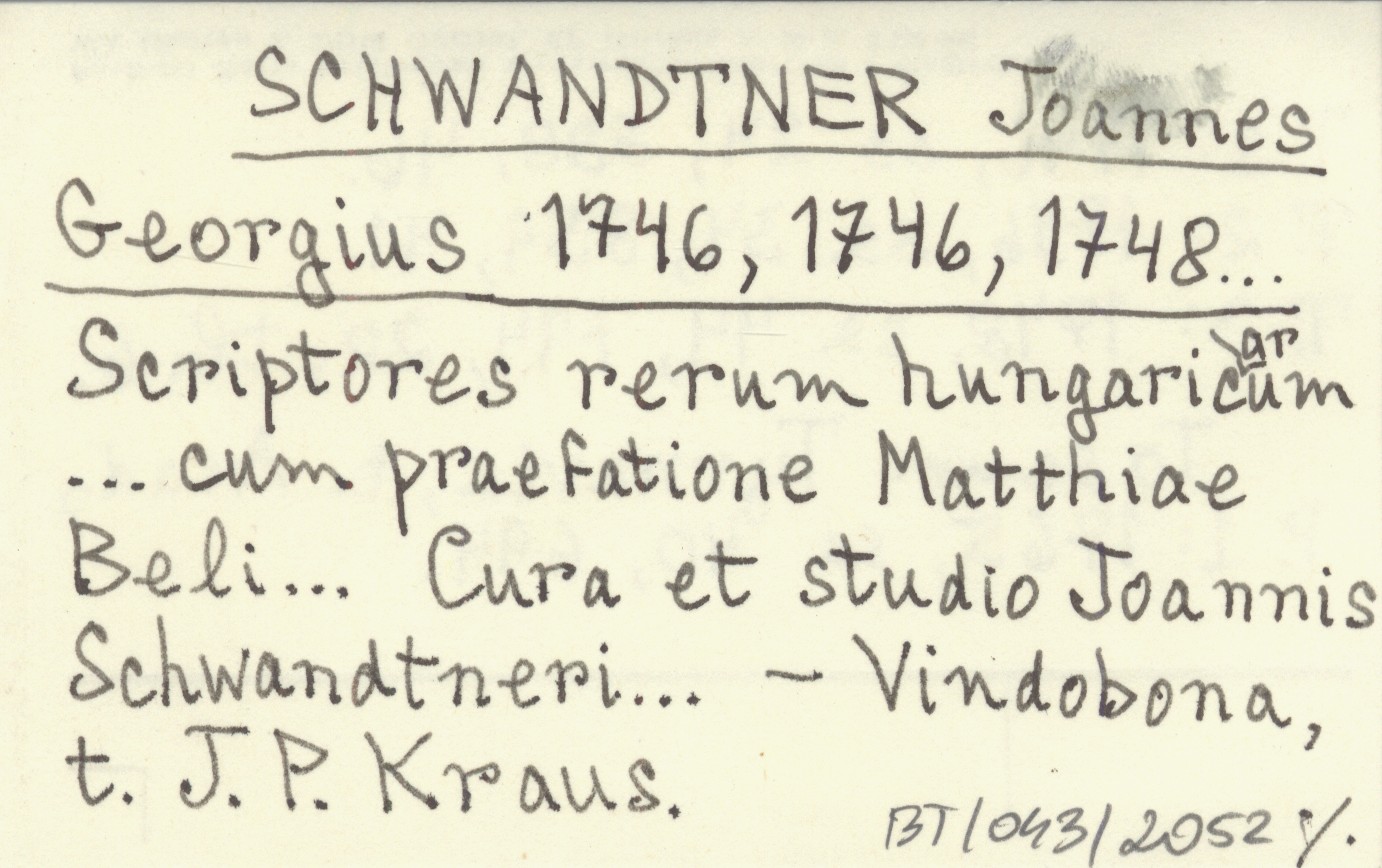 SCHWANDTNER Joannes
Georgius 1746, 1746, 1748...
Scriptores rerum hungaricarum
... cum praefatione Matthiae
Beli... Cura et studio Joannis
Schwandtneri... - Vindobona,
t. J. P. Kraus.
BT/043/2052 ./.